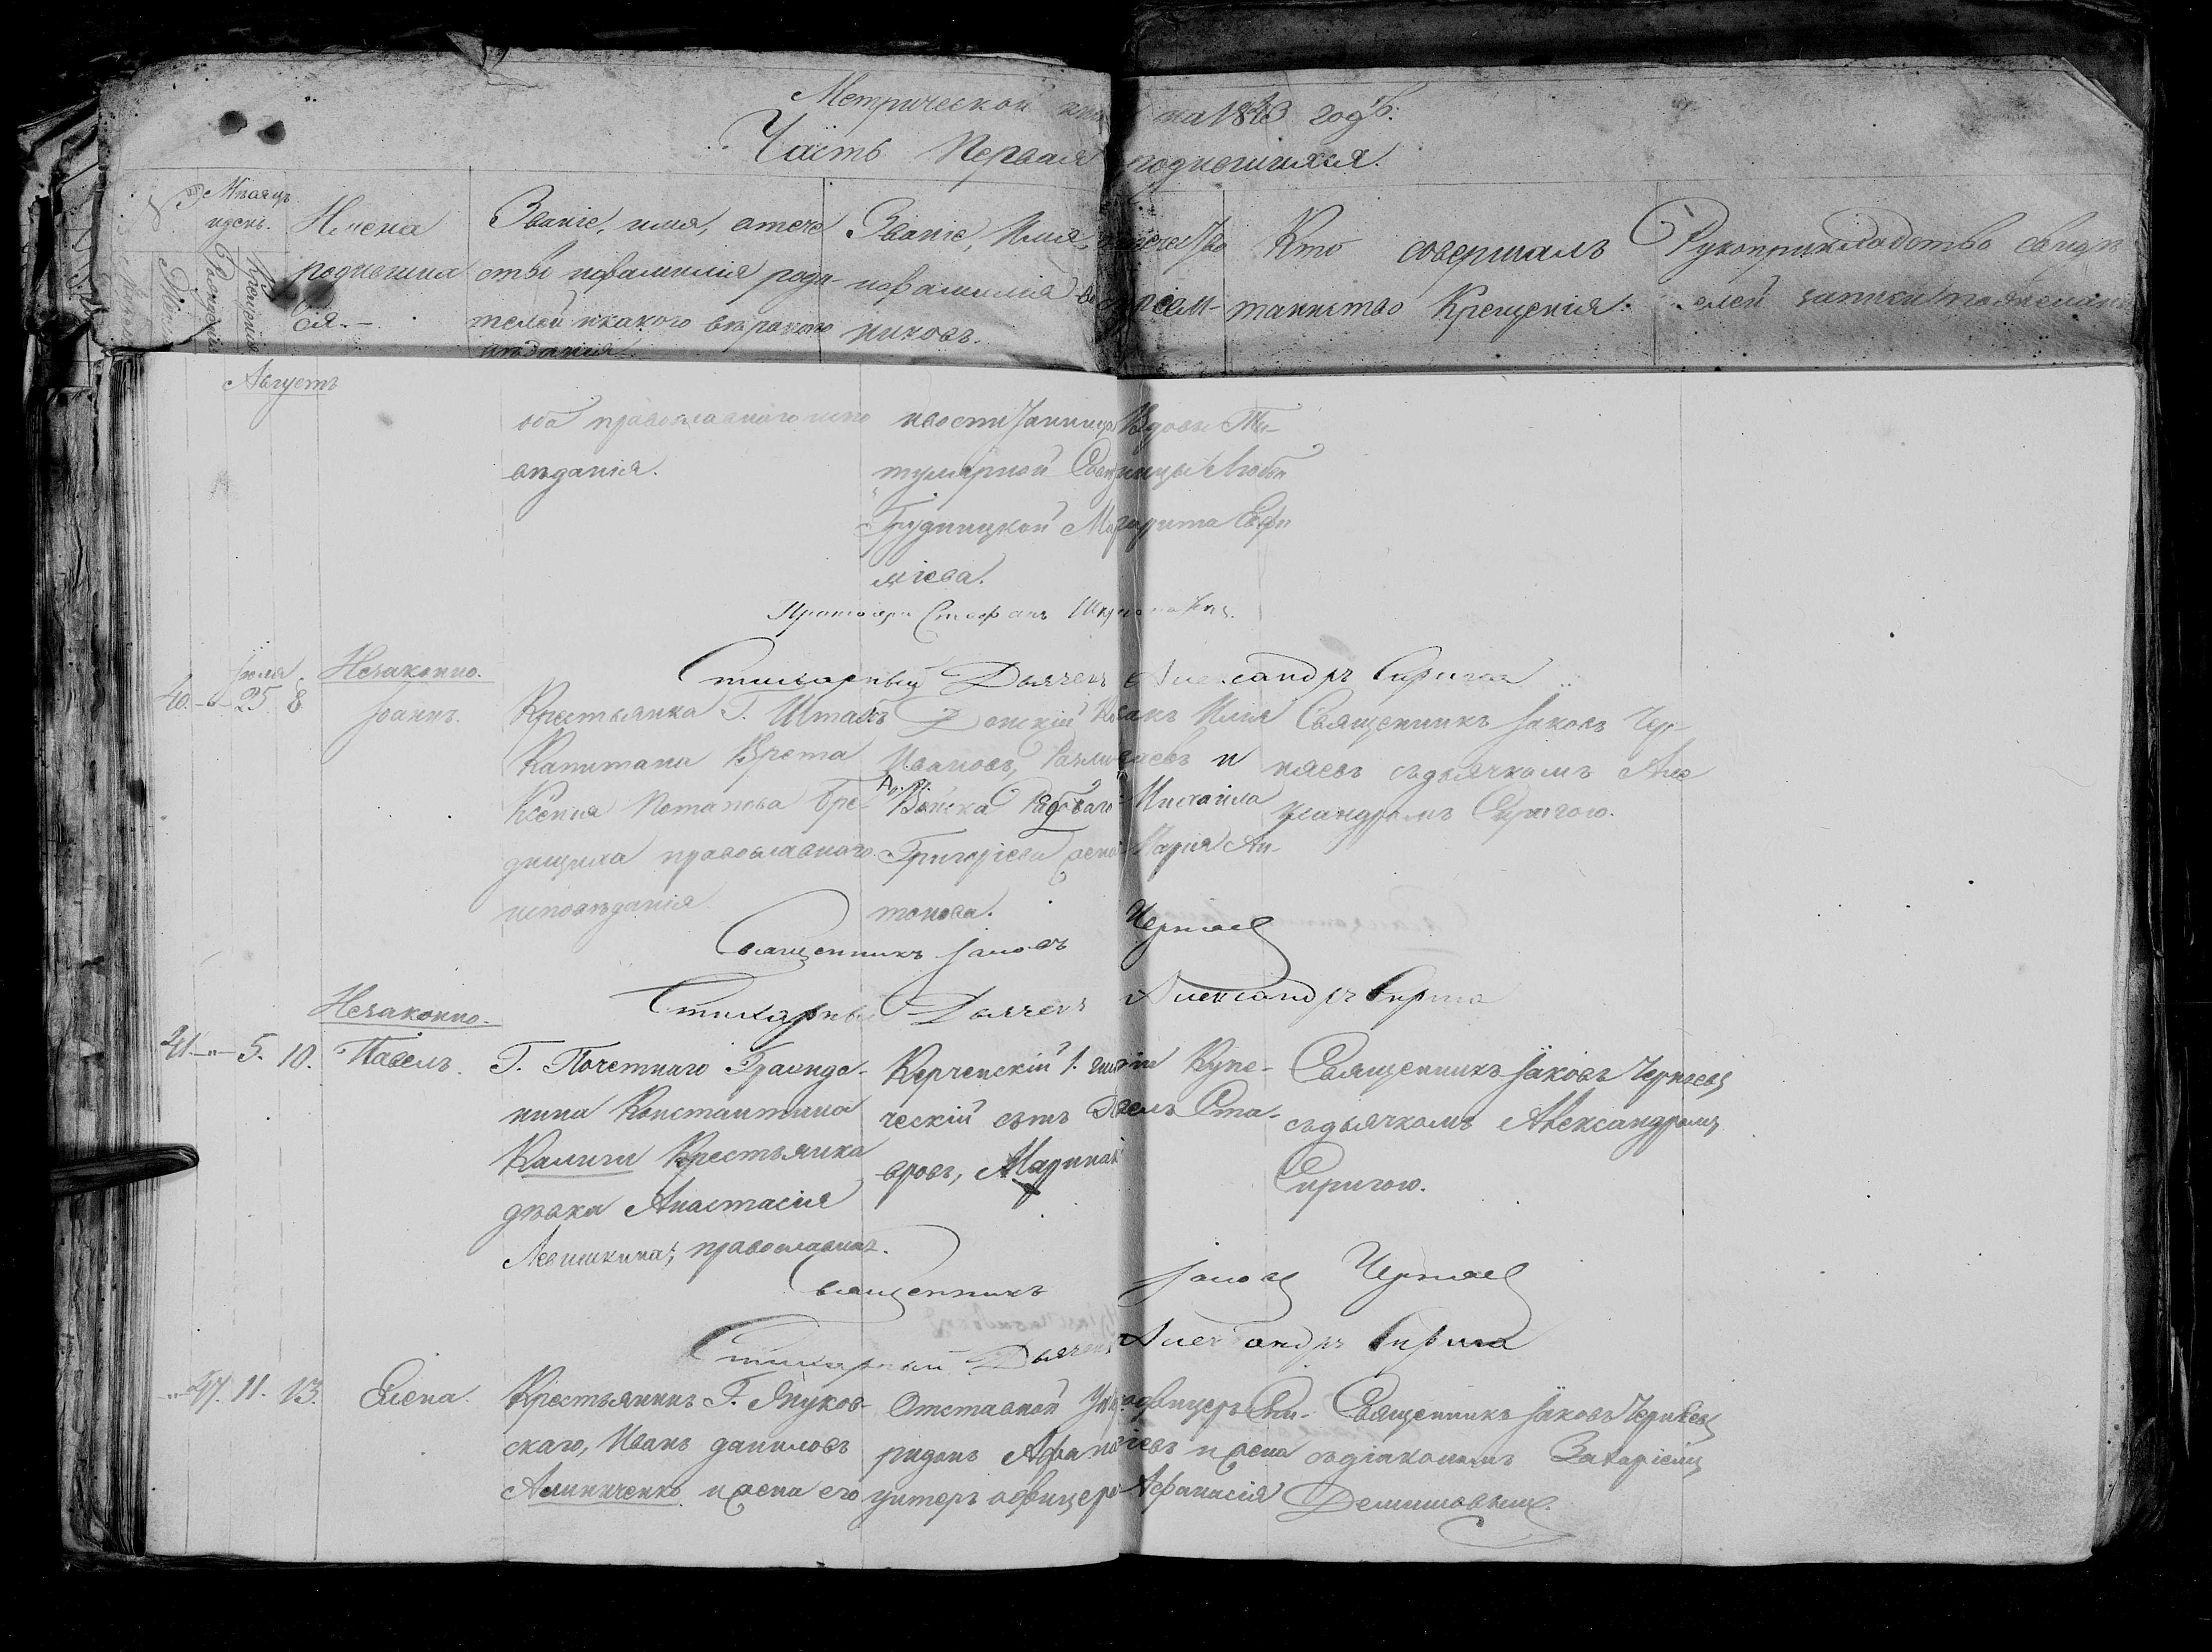 Метрической на 1843 годъ.
Часть Первая родившихся.
Мѣсяцъ и день.
Рожденія
Крещенія
Имена родившихся.
Званіе, имя, отечество и фамилия родителей и какого вѣроисповѣданія.
Званіе, Имя, отечество и фамилия воспріемниковъ.
Кто совершалъ таинство Крещенія.
Рукоприкладство свидѣтелей записи по желанію
Августъ
оба православнаго испо
вѣданія.
Вдовы Ти-
тулярной Совѣтницы Любви
Грудницкой Маргарита Евфи
міева.
Протоіерей Стефанъ
Стихарный Дьячекъ Александръ Сирига
Незаконно.
40. Іюля 25. 8
Іоаннъ.
Крестьянка Г. Штабъ
Капитана
Ксенія Потапова Бре-
дищиха православнаго
исповѣданія.
Донскій Козакъ Илія
Ивановъ, и
Войска Михаила
Григорьева жена Марія Ан-
тонова.
Священникъ Іаковъ Чер-
няевъ съ дьячкомъ Але
ксандромъ Сиригою.
Священникъ Іаковъ Черняев
Стихарный Дьячекъ Александръ Сирига
Незаконно.
41. 5. 10. Павелъ.
Г. Почетнаго Гражда-
нина Константина
Калиги Крестьянка
дѣвка Анастасія
Левишкина, православнаг.
Керченскій 1. гильдіи Купе-
ческій сынъ Павелъ Ста-
вровъ, Марина
Священникъ Іаковъ Черняевъ
съ дьячкомъ Александромъ
Сиригою.
Священникъ Іаков Черняев
Стихарный Дьячекъ Александръ Сирига
47. 11. 13. Елена.
Крестьянинъ Г. Януков-
скаго, Иванъ Даниловъ
Алиниченко и жена его
Отставной Унтеръ офицеръ Спи-
ридонъ Афанасіевъ и жена
унтеръ офицера Афанасія
Священникъ Іаковъ Черняевъ
съ діакономъ Захаріемъ
Демишовымъ.